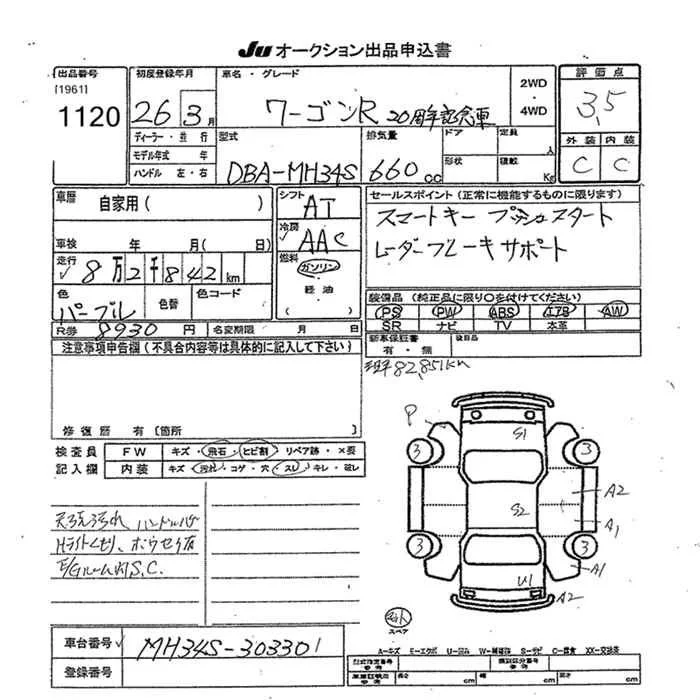 JU オークション出品申込書
出品番号
[1961]
1120
初度登録年月
26 3月
車名・グレード
ワーゴンR 20周年記念車
2WD
4WD
評価点
3.5
外装 内装
C C
ディーラー・並行
モデル年式 年
ハンドル 左・右
型式
DBA-MH34S
排気量
660cc
ドア
形状
定員
人
積載
Kg
車歴
自家用( )
車検 年 月( 日)
走行
8万2千842km
色
パープル
色替
色コード
シフト
AT
冷房
AAC
燃料
ガソリン
軽油
( )
セールスポイント(正常に機能するものに限ります)
スマートキー プッシュスタート
レーダーブレーキサポート
装備品(純正品に限り○を付けてください)
PS PW ABS エアB AW
SR ナビ TV 本革
R券 8930円
名変期限 月 日
新車保証書
有・無
後日品
注意事項申告欄(不具合内容等は具体的に記入して下さい)
82,851km
修復歴 有〔箇所 〕
検査員
記入欄
FW キズ・飛石・ヒビ割・リペア跡・×要
内装 キズ・汚れ・コゲ・穴・スレ・キレ・ビレ
ハンドル
Hライトくもり、
S.C.
P
S1
3 3
A2
S2
A1
3 3
A1
U1
A2
スペア
A…キズ E…エクボ U…凹み W…補修跡 S…サビ C…腐食 XX…交換済
車台番号
MH34S-303301
登録番号
型式指定番号
参考
類別区分番号
参考
参考
長さ cm 幅 cm 高さ cm